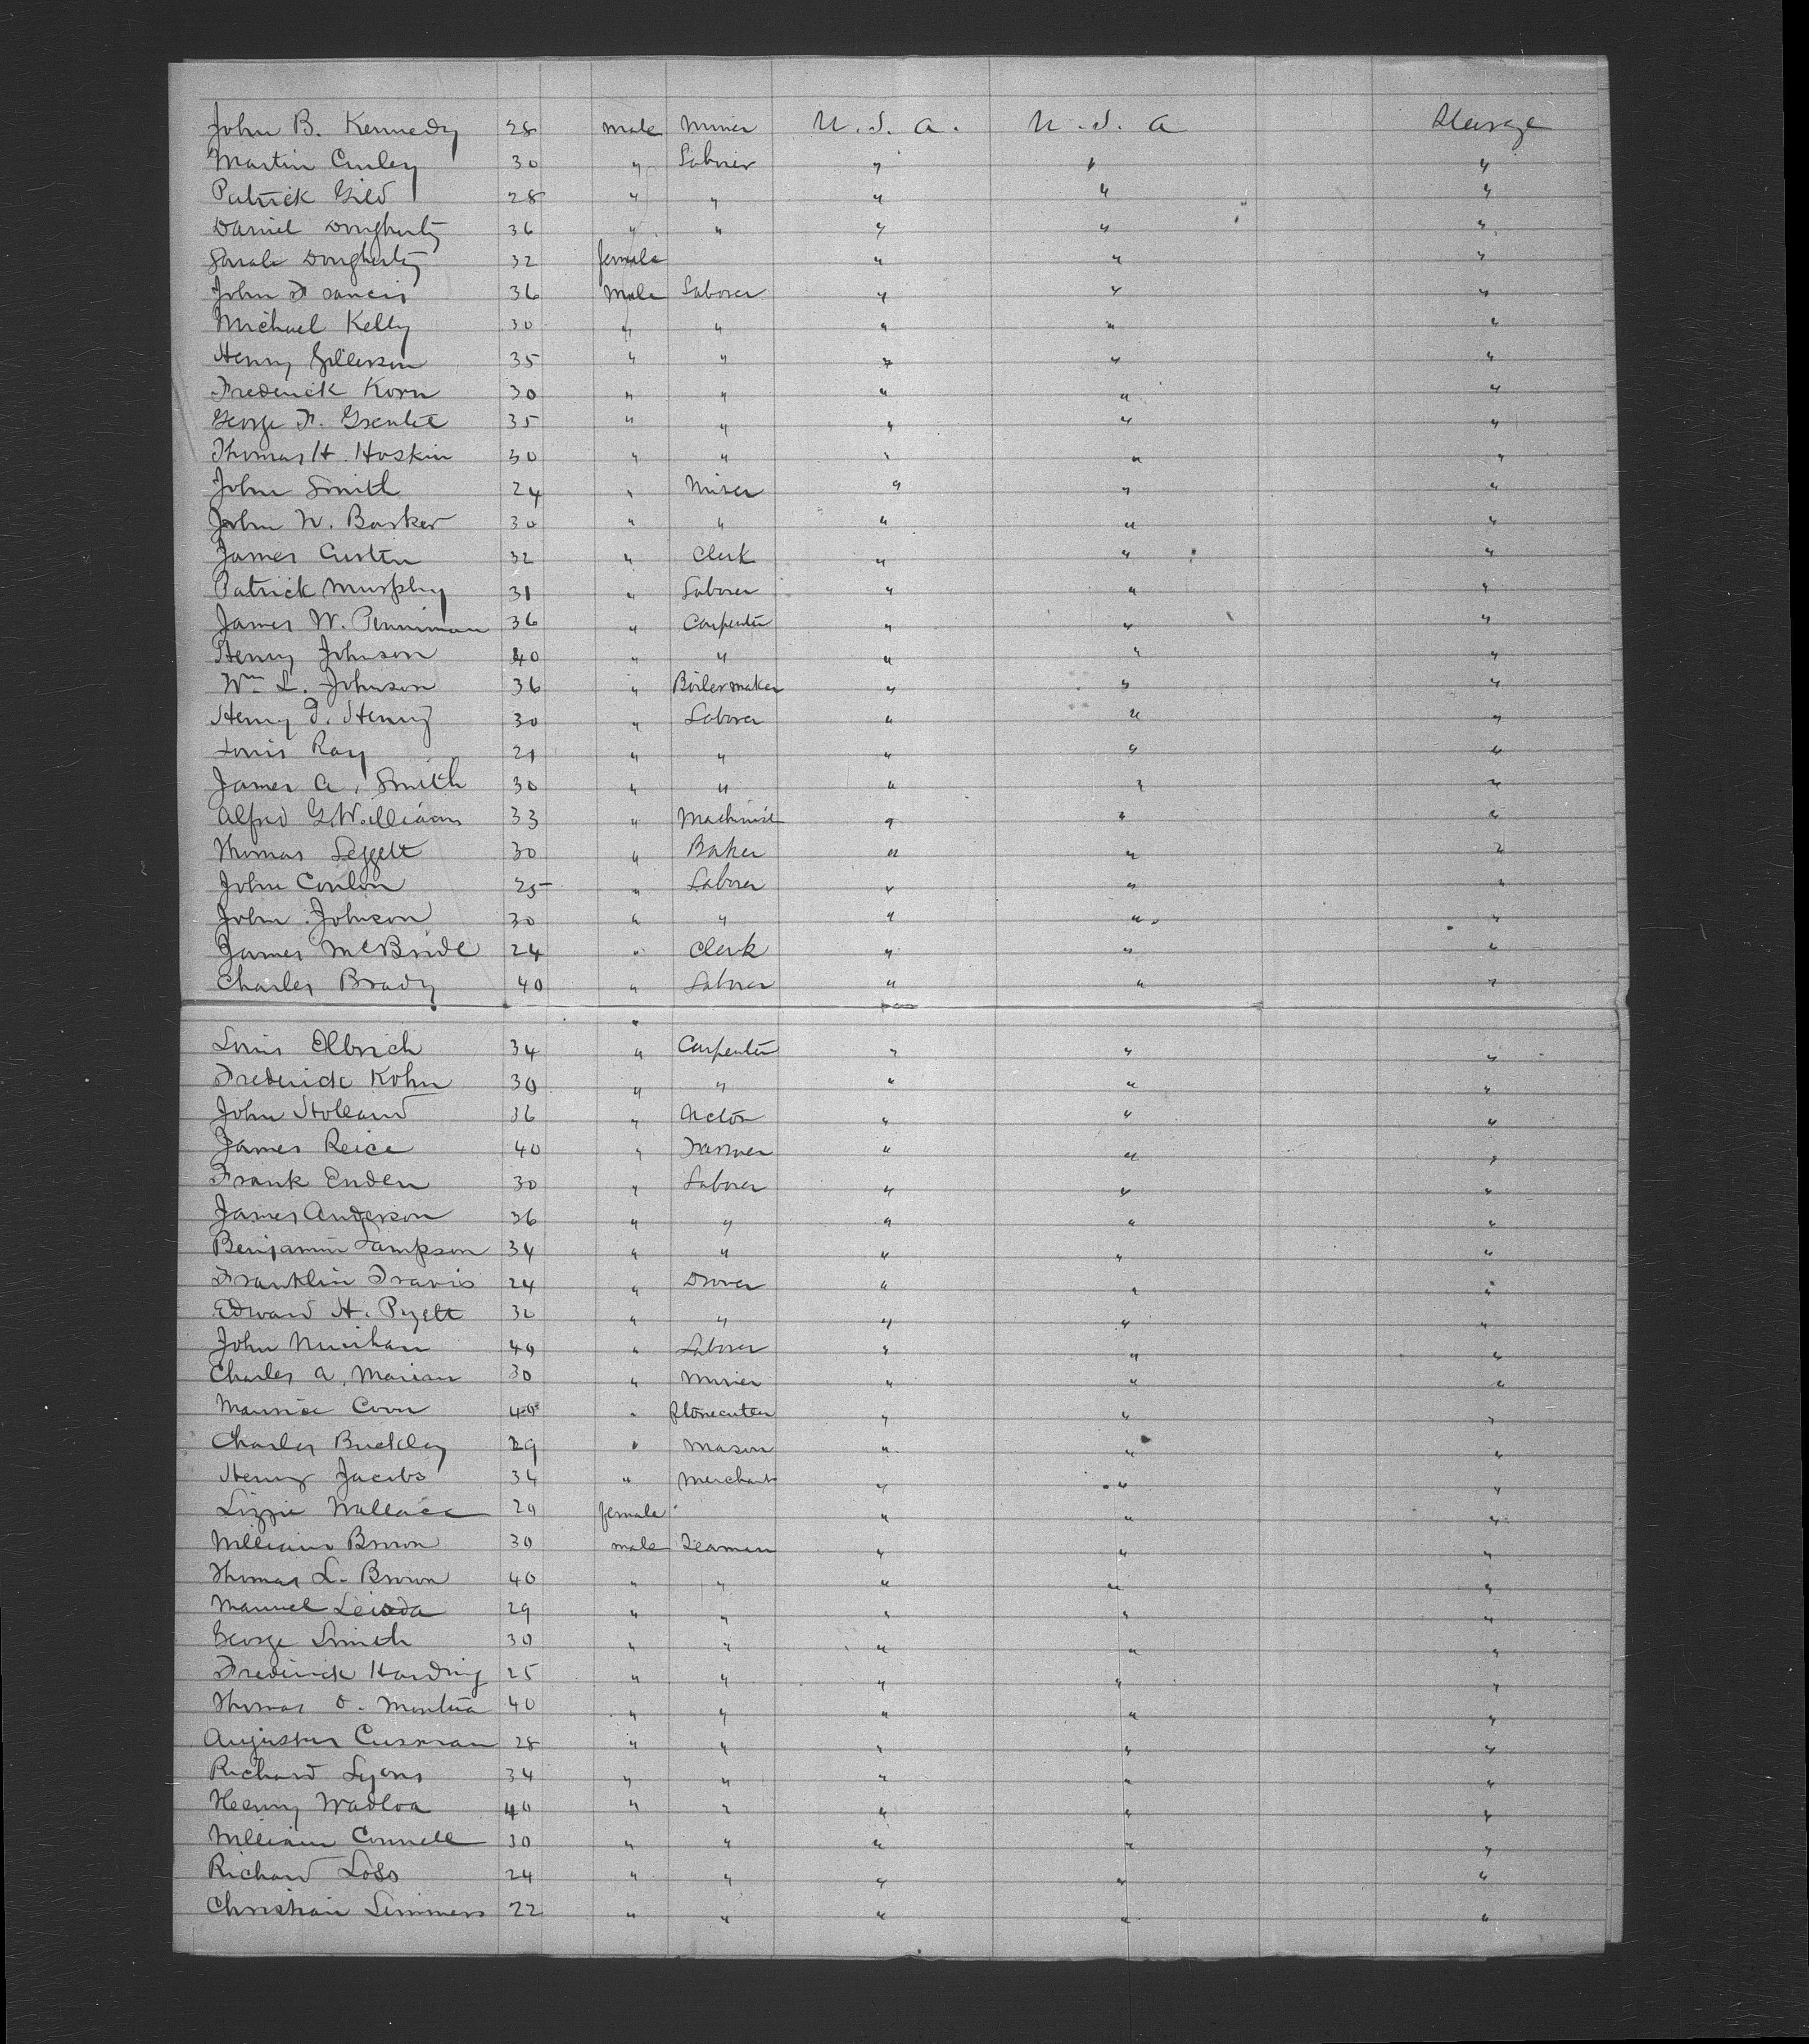 John B. Kennedy 28 male Miner U. S. A. U. S. A Steerage
Martin Curley 30 " Laborer " " "
Patrick Gild 28 " " " " "
Daniel Dougherty 36 " " " " "
Sarah Dougherty 32 female " " "
John Francis 36 Male Laborer " " "
Michael Kelly 30 " " " " "
Henry Gillerson 35 " " " " "
Frederick Korn 30 " " " " "
George F. 35 " " " " "
Thomas H. Hoskin 30 " " " " "
John Smith 24 " Miner " " "
John W. Barker 30 " " " " "
James Curtin 32 " Clerk " " "
Patrick Murphy 31 " Laborer " " "
James W. Penniman 36 " Carpenter " " "
Henry Johnson 40 " " " " "
Wm L. Johnson 36 " Boilermaker " " "
Henry J. Henry 30 " Laborer " " "
Louis Ray 21 " " " " "
James A. Smith 30 " " " " "
Alfred G. William 33 " Machinist " " "
Thomas Leggett 30 " Baker " " "
John Conlon 25 " Laborer " " "
John Johnson 30 " " " " "
James McBride 24 " Clerk " " "
Charles Brady 40 " Laborer " " "
Louis Elbrich 34 " Carpenter " " "
Frederick Kohn 30 " " " " "
John Holland 36 " Actor " " "
James Reice 40 " Farmer " " "
Frank Enden 30 " Laborer " " "
James Anderson 36 " " " " "
Benjamin Sampson 34 " " " " "
Franklin Travis 24 " Drover " " "
Edward H. Pyett 30 " " " " "
John 40 " Laborer " " "
Charles A. Marian 30 " Miner " " "
Maurice Coon 40 " Stonecutter " " "
Charles Buckley 29 " Mason " " "
Henry Jacobs 34 " Merchant " " "
Lizzie Wallace 29 female " " "
William Brown 30 male Seaman " " "
Thomas L. Brown 40 " " " " "
Manuel 29 " " " " "
George Smith 30 " " " " "
Frederick Harding 25 " " " " "
Thomas O. 40 " " " " "
Augustus Cusman 28 " " " " "
Richard Lyons 34 " " " " "
Henry Wadloa 40 " " " " "
William Connell 30 " " " " "
Richard Loss 24 " " " " "
Christian Simmers 22 " " " " "